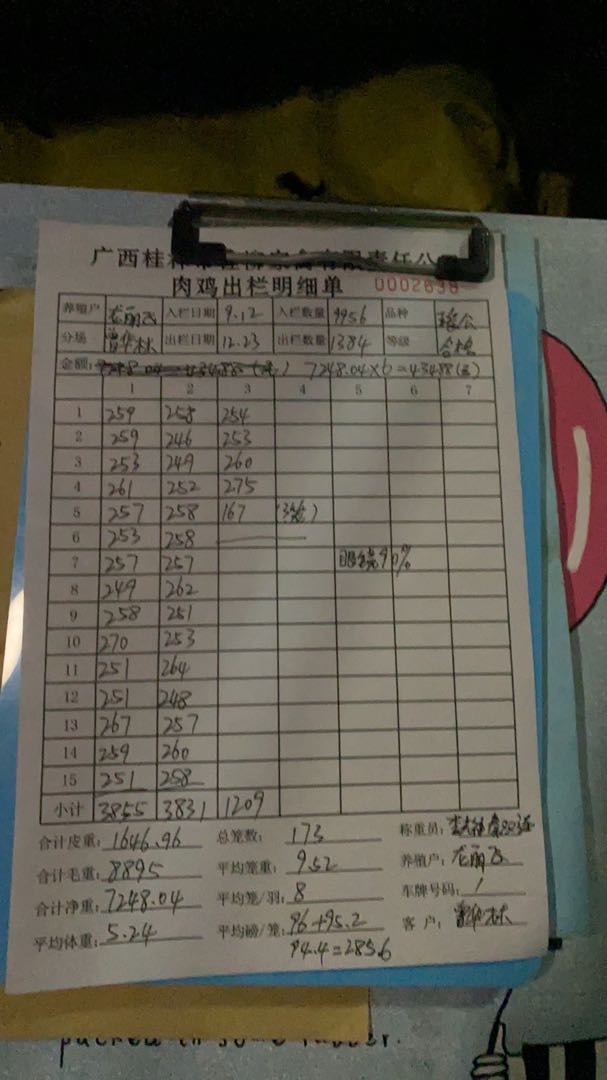 广西桂林市桂柳家禽有限责任公
肉鸡出栏明细单 0002638
养殖户 龙丽飞 入栏日期 9.12 入栏数量 9956 品种 瑶公
分场 曾华林 出栏日期 12.23 出栏数量 1384 等级 合格
金额: 7248.04×6=43488(元)
1 2 3 4 5 6 7
1 259 258 254
2 259 246 253
3 253 249 260
4 261 252 275
5 257 258 167
6 253 258
7 257 257 90%
8 249 262
9 258 251
10 270 253
11 251 264
12 251 248
13 267 257
14 259 260
15 251 258
小计 3855 3831 1209
合计皮重: 1646.96 总笼数: 173 称重员:
合计毛重: 8895 平均笼重: 9.52 养殖户: 龙丽飞
合计净重: 7248.04 平均笼/羽: 8 车牌号码: /
平均体重: 5.24 平均磅/笼: 96+95.2 客户: 曾华林
94.4=285.6
packed in some rubber.